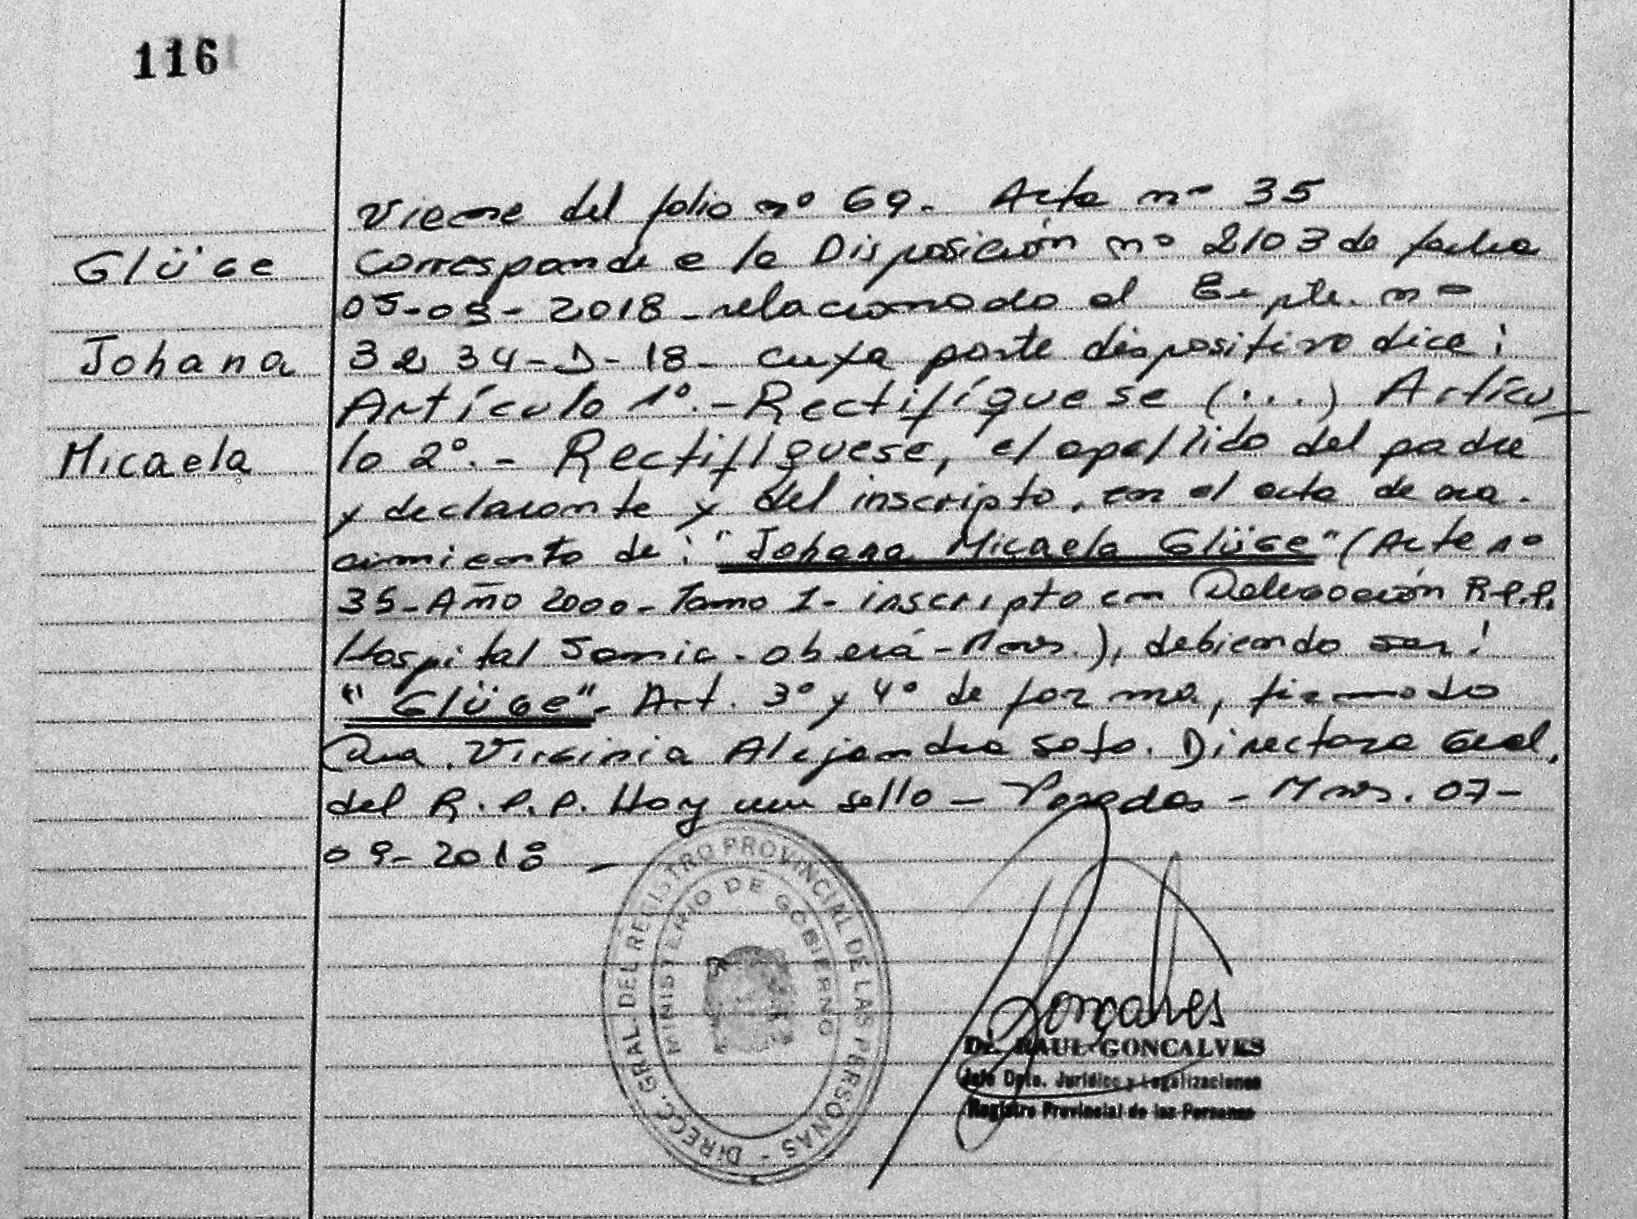 116
Viene del folio nº 69. Acta nº 35
Glüge
Corresponde a la Disposición nº 2103 de fecha
05-09-2018 - relacionado al Expte. nº
Johana
3234-D-18- cuya parte dispositiva dice:
Artículo 1º.- Rectifíquese (...) Artícu-
Micaela
lo 2º.- Rectifíquese, el apellido del padre
y declarante y del inscripto, en el acta de na-
cimiento de: "Johana Micaela Glüge" (Acta nº
35-Año 2000-Tomo 1- inscripto en Delegación R.P.P.
Hospital Samic-oberá-Mnes.), debiendo ser:
"Glüge"- Art. 3º y 4º de forma, firmado
Dra. Virginia Alejandra Soto. Directora Gral.
del R.P.P. Hay un sello - Posadas - Mnes. 07-
09-2018 -
DIRECC. GRAL. DEL REGISTRO PROVINCIAL DE LAS PERSONAS -
MINISTERIO DE GOBIERNO
Gonçalves
Dr. RAUL GONCALVES
Jefe Dpto. Jurídico y Legalizaciones
Registro Provincial de las Personas